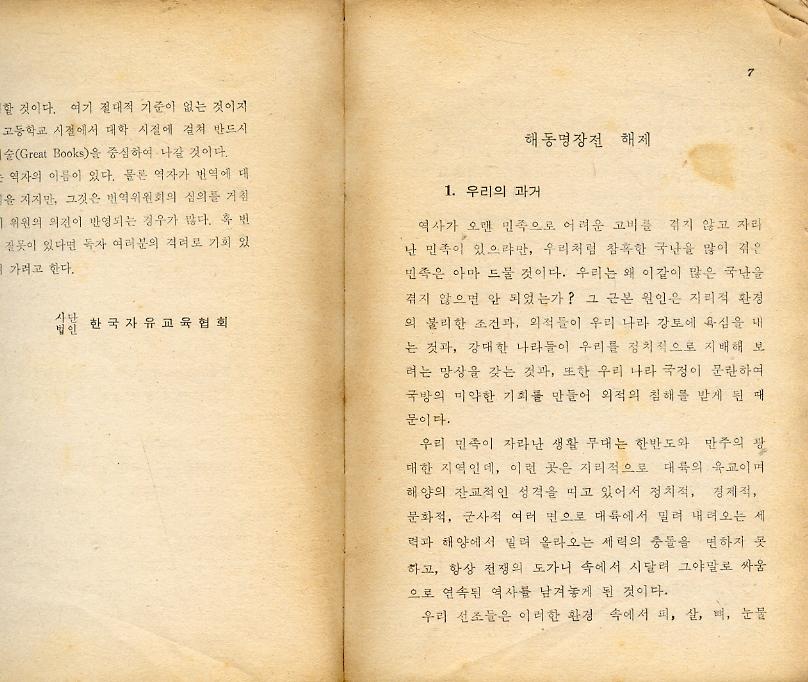 할 것이다. 여기 절대적 기준이 없는 것이지
고등학교 시절에서 대학 시절에 걸쳐 반드시
술(Great Books)을 중심하여 나갈 것이다.
역자의 이름이 있다. 물론 역자가 번역에 대
을 지지만, 그것은 번역위원회의 심의를 거침
위원의 의견이 반영되는 경우가 많다. 혹 번
잘못이 있다면 독자 여러분의 격려로 기회 있
가려고 한다.
사단법인 한국자유교육협회
7
해동명장전 해제
1. 우리의 과거
역사가 오랜 민족으로 어려운 고비를 겪지 않고 자라
난 민족이 있으랴만, 우리처럼 참혹한 국난을 많이 겪은
민족은 아마 드물 것이다. 우리는 왜 이같이 많은 국난을
겪지 않으면 안 되었는가? 그 근본 원인은 지리적 환경
의 불리한 조건과, 외적들이 우리 나라 강토에 욕심을 내
는 것과, 강대한 나라들이 우리를 정치적으로 지배해 보
려는 망상을 갖는 것과, 또한 우리 나라 국정이 문란하여
국방의 미약한 기회를 만들어 외적의 침해를 받게 된 때
문이다.
우리 민족이 자라난 생활 무대는 한반도와 만주의 광
대한 지역인데, 이런 곳은 지리적으로 대륙의 육교이며
해양의 잔교적인 성격을 띠고 있어서 정치적, 경제적,
문화적, 군사적 여러 면으로 대륙에서 밀려 내려오는 세
력과 해양에서 밀려 올라오는 세력의 충돌을 면하지 못
하고, 항상 전쟁의 도가니 속에서 시달려 그야말로 싸움
으로 연속된 역사를 남겨놓게 된 것이다.
우리 선조들은 이러한 환경 속에서 피, 살, 뼈, 눈물